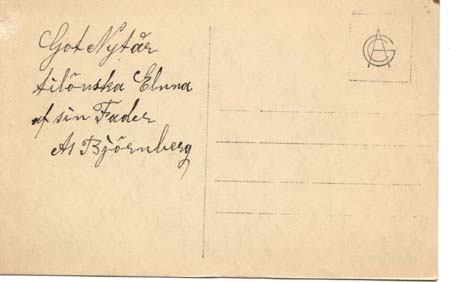 Got Nytår
tilönska Elnna
af sin Fader
As Björnberg